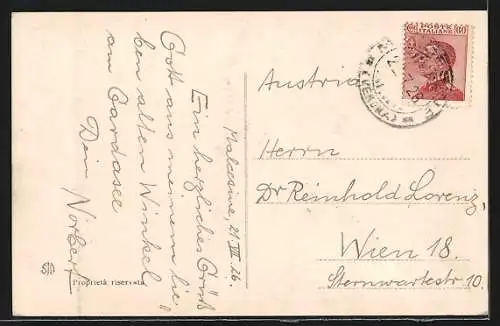 Malcesine, 21 VII 26.
Ein herzliches Grüß
Gott aus meinem lie,
ben alten Winkel
am Gardasee
Dein Norbert
Proprietà riservata
POSTE
ITALIANE
60
(VERONA)
Austria
Herrn
Dr Reinhold Lorenz,
Wien 18.
Sternwartestr 10.